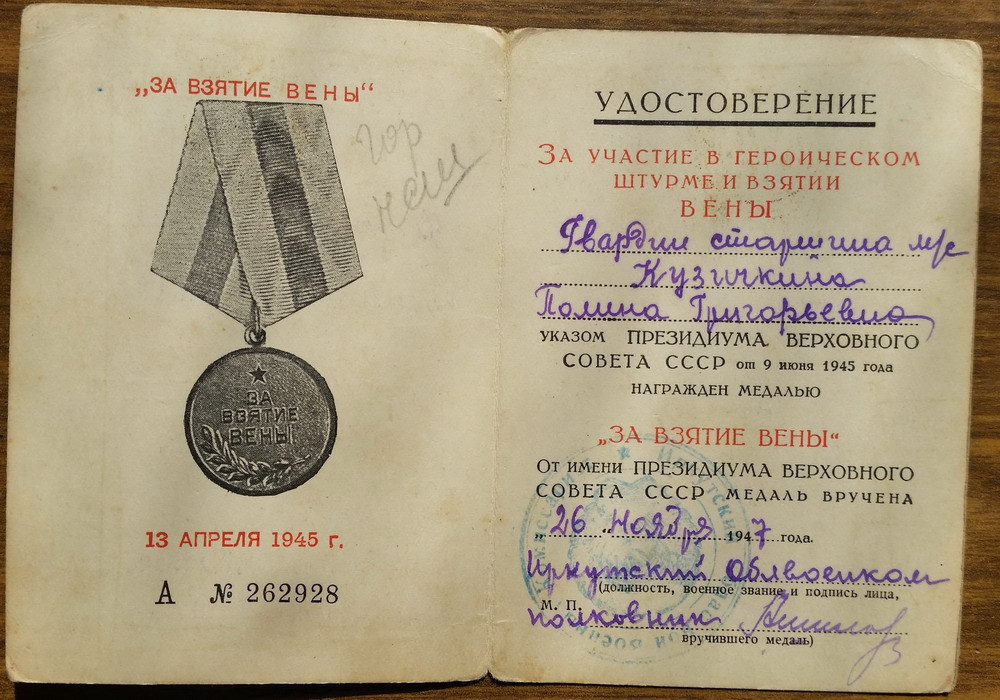 „ЗА ВЗЯТИЕ ВЕНЫ“
ЗА
ВЗЯТИЕ
ВЕНЫ
13 АПРЕЛЯ 1945 г.
А № 262928
УДОСТОВЕРЕНИЕ
ЗА УЧАСТИЕ В ГЕРОИЧЕСКОМ
ШТУРМЕ И ВЗЯТИИ
ВЕНЫ
Гвардии старшина м/с
Кузичкина
Полина Григорьевна
УКАЗОМ ПРЕЗИДИУМА ВЕРХОВНОГО
СОВЕТА СССР от 9 июня 1945 года
НАГРАЖДЕН МЕДАЛЬЮ
„ЗА ВЗЯТИЕ ВЕНЫ“
ОТ ИМЕНИ ПРЕЗИДИУМА ВЕРХОВНОГО
СОВЕТА СССР МЕДАЛЬ ВРУЧЕНА
„26 “ Ноября 1947 года.
Иркутский Облвоенком
(должность, военное звание и подпись лица,
М. П.
полковник
вручившего медаль)